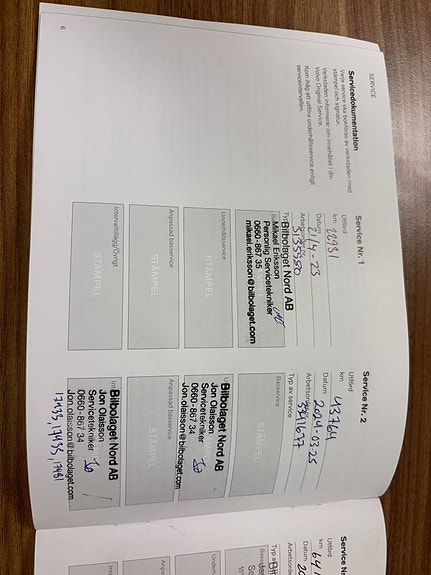 SERVICE
Servicedokumentation
Varje service ska bokföras av verkstaden med
stämpel och signatur.
Verkstaden informerar om innehållet i din
Volvo Original Service.
Kom ihåg att utföra underhållsservice enligt
serviceintervallen.
6
Service Nr. 1
Utförd
km
Datum 21/4-23
Arbetsorder
Bilbolaget Nord AB
Mikael Eriksson
Personlig Servicetekniker
0660-867 35
mikael.eriksson@bilbolaget.com
Underhållsservice
STÄMPEL
Anpassad basservice
STÄMPEL
Intervalltillägg/Övrigt
STÄMPEL
Service Nr. 2
Utförd
km 43764
Datum 2024-03-25
Arbetsorder
Typ av service
Basservice
STÄMPEL
Bilbolaget Nord AB
Jon Olaisson
Servicetekniker
0660-867 34
Jon.olaisson@bilbolaget.com
Anpassad basservice
STÄMPEL
Bilbolaget Nord AB
Jon Olaisson
Servicetekniker
0660-867 34
Jon.olaisson@bilbolaget.com
Service Nr.
Utförd
km
Datum
Arbetsorder